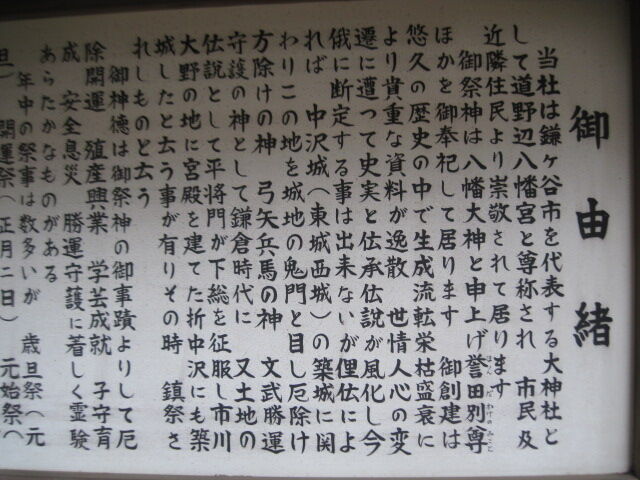 御由緒
当社は鎌ヶ谷市を代表する大神社と
して道野辺八幡宮と尊称され 市民及
近隣住民より崇敬されて居ります
御祭神は八幡大神と申上げ誉田別尊
ほかを御奉祀して居ります 御創建は
悠久の歴史の中で生成流転栄枯盛衰に
より貴重な資料が逸散 世情人心の変
遷に遭って史実と伝承伝説が風化し今
俄に断定する事は出来ないが俚伝によ
れば 中沢城(東城西城)の築城に関
わりこの地を城地の鬼門と目し厄除け
方除けの神 弓矢兵馬の神 文武勝運
守護の神として鎌倉時代に 又土地の
伝説として平将門が下総を征服し市川
大野の地に宮殿を建てた折中沢にも築
城したと云う事が有りその時 鎮祭さ
れしものと云う
御神徳は御祭神の御事蹟よりして厄
除開運 殖産興業 学芸成就 子守育
成 安全息災 勝運守護に著しく霊験
あらたかなものがある
年中の祭事は数多いが 歳旦祭(元
旦) 開運祭(正月二日) 元始祭(